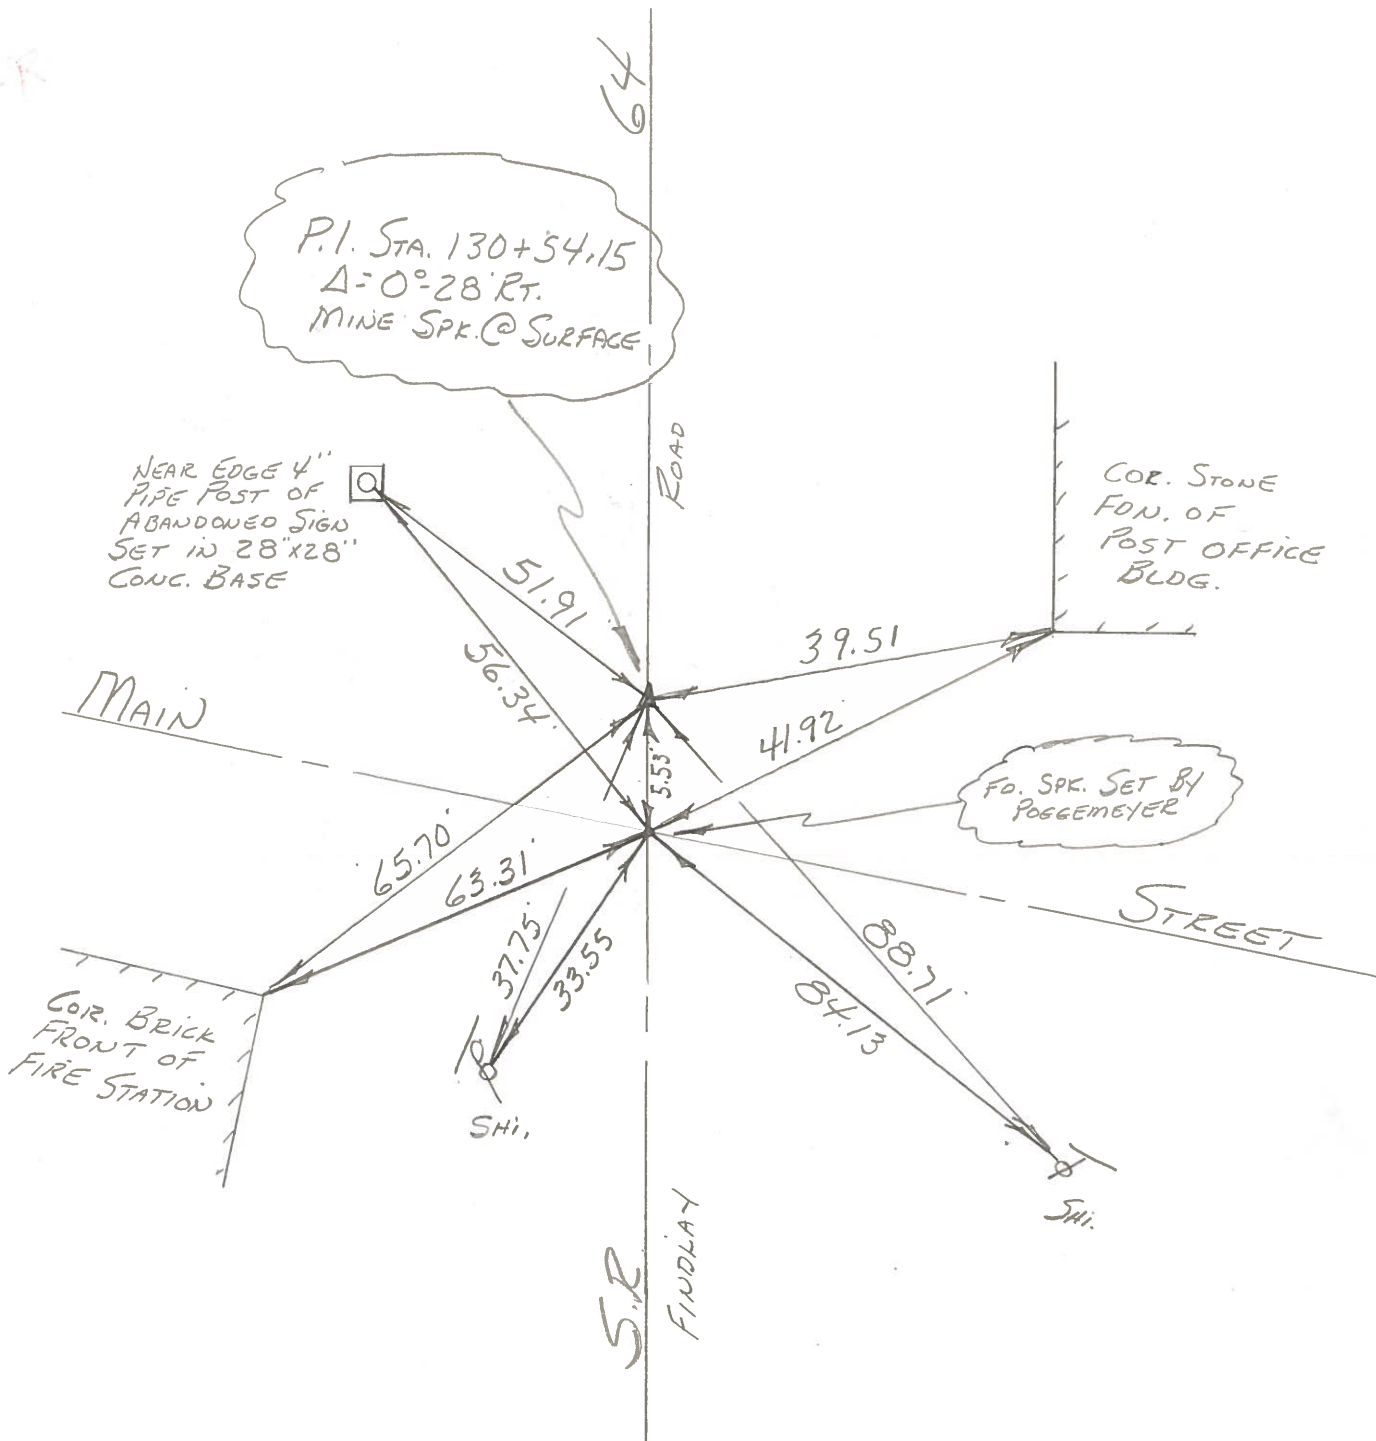 64
P.I. STA. 130+54.15
Δ=0°-28' RT.
MINE SPK. @ SURFACE
ROAD
NEAR EDGE 4"
PIPE POST OF
ABANDONED SIGN
SET IN 28"X28"
CONC. BASE
COR. STONE
FDN. OF
POST OFFICE
BLDG.
51.91
39.51
56.34'
MAIN
41.92'
5.53'
FD. SPK. SET BY
POGGEMEYER
65.70'
63.31'
STREET
37.75'
33.55
88.71'
84.13
COR. BRICK
FRONT OF
FIRE STATION
SHI.
SHI.
S.R
FINDLAY